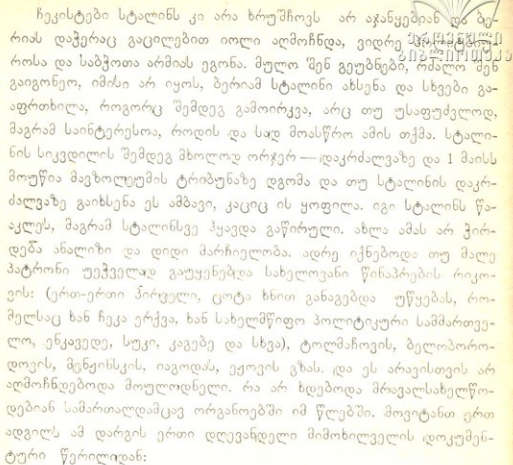 ჩეკისტები სტალინს კი არა ხრუშჩოვს არ აჯანყებიან და ბე-
რიას დაჭერაც გაცილებით იოლი აღმოჩნდა, ვიდრე
როსა და საბჭოთა არმიას ეგონა. მულო შენ გეუბნები, რძალო შენ
გაიგონეო, იმისი არ იყოს, ბერიამ სტალინი ახსენა და სხვები გა-
აფრთხილა, როგორც შემდეგ გამოირკვა, არც თუ უსაფუძვლოდ,
მაგრამ საინტერესოა, როდის და სად მოასწრო ამის თქმა. სტალი-
ნის სიკვდილის შემდეგ მხოლოდ ორჯერ — დაკრძალვაზე და 1 მაისს
მოუწია მავზოლეუმის ტრიბუნაზე დგომა და თუ სტალინის დაკრ-
ძალვაზე გაიხსენა ეს ამბავი, კაციც ის ყოფილა. იგი სტალინს წა-
აკლეს, მაგრამ სტალინსვე ჰყავდა გაწირული. ახლა ამას არ ჭირ-
დება ანალიზი და დიდი მარჩიელობა. ადრე იქნებოდა თუ მალე
პატრონი უეჭველად გაუყენებდა სახელოვანი წინაპრების რიკო-
ვის: (ერთ-ერთი პირველი, ცოტა ხნით განაგებდა უწყებას, რო-
მელსაც ხან ჩეკა ერქვა, ხან სახელმწიფო პოლიტიკური სამმართვე-
ლო, ენკავედე, სუკი, კაგებე და სხვა), ტოლმაჩოვის, ბელობორო-
დოვის, მენჟინსკის, იაგოდას, ეჟოვის გზას. და ეს არავისთვის არ
აღმოჩნდებოდა მოულოდნელი. რა არ ხდებოდა მრავალსახელწო-
დებიან სამართალდამცავ ორგანოებში იმ წლებში. მოვიტანთ ერთ
ადგილს ამ დარგის ერთი დღევანდელი მიმოხილველის დოკუმენ-
ტური წერილიდან: